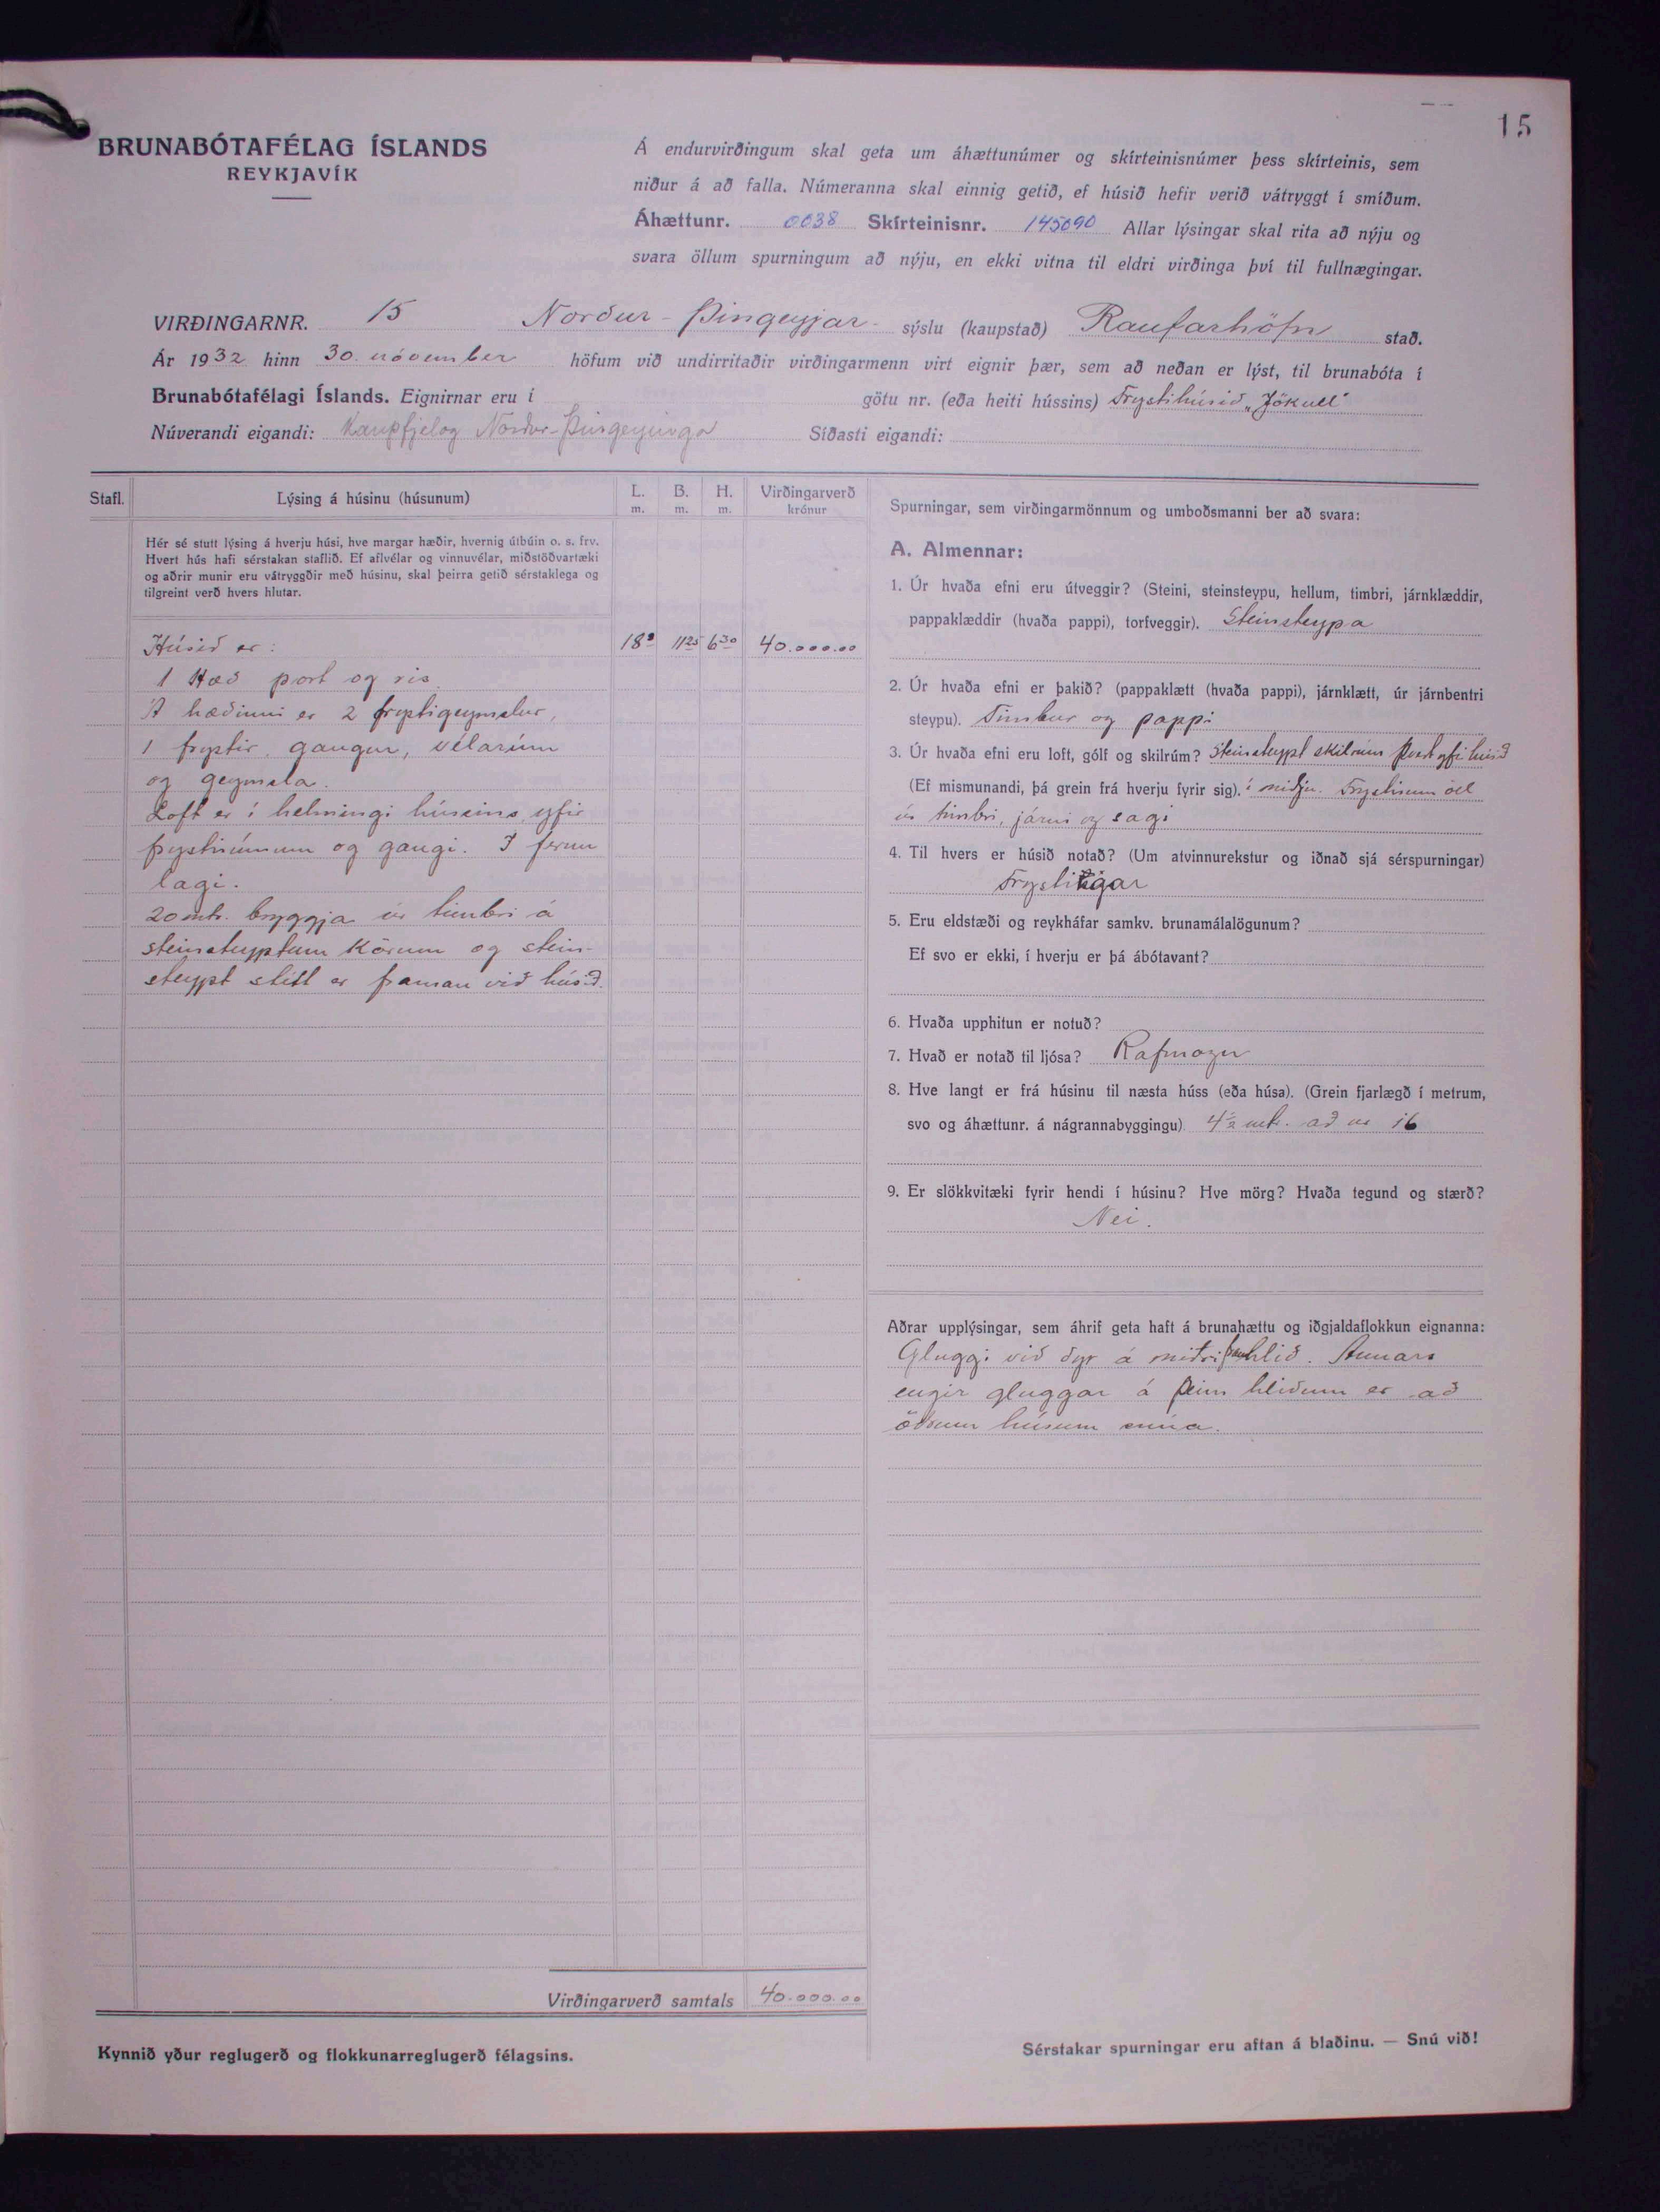 15
BRUNABÓTAFÉLAG ÍSLANDS
REYKJAVÍK
Á endurvirðingum skal geta um áhættunúmer og skírteinisnúmer þess skírteinis, sem
niður á að falla. Númeranna skal einnig getið, ef húsið hefir verið vátryggt í smíðum.
Áhættunr. 0038 Skírteinisnr. 145090 Allar lýsingar skal rita að nýju og
svara öllum spurningum að nýju, en ekki vitna til eldri virðinga því til fullnægingar.
VIRÐINGARNR. 15 Norður-Þingeyjar- sýslu (kaupstað) Raufarhöfn stað.
Ár 1932 hinn 30. nóvember höfum við undirritaðir virðingarmenn virt eignir þær, sem að neðan er lýst, til brunabóta í
Brunabótafélagi Íslands. Eignirnar eru í götu nr. (eða heiti hússins) Frystihúsið „Jökull"
Núverandi eigandi: Kaupfjelag Norður-Þingeyinga Síðasti eigandi:
Stafl. Lýsing á húsinu (húsunum) L. m. B. m. H. m. Virðingarverð krónur
Hér sé stutt lýsing á hverju húsi, hve margar hæðir, hvernig útbúin o. s. frv.
Hvert hús hafi sérstakan staflið. Ef aflvélar og vinnuvélar, miðstöðvartæki
og aðrir munir eru vátryggðir með húsinu, skal þeirra getið sérstaklega og
tilgreint verð hvers hlutar.
Húsið er: 11 25 6 30 40.000.00
1 Hæð port og ris.
Á hæðinni er 2 frystigeymslur,
1 frystir, gangur, vélarúm
og geymsla.
Loft er í helmingi hússins, yfir
frystirúmum og gangi. Í
lagi.
20 mtr. bryggja úr timbri á
steinsteyptum Körum og stein-
steypt stétt er framan við húsið.
Virðingarverð samtals 40.000.00
Kynnið yður reglugerð og flokkunarreglugerð félagsins.
Spurningar, sem virðingarmönnum og umboðsmanni ber að svara:
A. Almennar:
1. Úr hvaða efni eru útveggir? (Steini, steinsteypu, hellum, timbri, járnklæddir,
pappaklæddir (hvaða pappi), torfveggir). Steinsteypa
2. Úr hvaða efni er þakið? (pappaklætt (hvaða pappi), járnklætt, úr járnbentri
steypu). Timbur og pappi
3. Úr hvaða efni eru loft, gólf og skilrúm? Steinsteypt skilrúm þvert yfir húsið
(Ef mismunandi, þá grein frá hverju fyrir sig). í miðju. Frystirúm öll
úr timbri, járni og sagi
4. Til hvers er húsið notað? (Um atvinnurekstur og iðnað sjá sérspurningar)
Frystingar
5. Eru eldstæði og reykháfar samkv. brunamálalögunum?
Ef svo er ekki, í hverju er þá ábótavant?
6. Hvaða upphitun er notuð?
7. Hvað er notað til ljósa? Rafmagn
8. Hve langt er frá húsinu til næsta húss (eða húsa). (Grein fjarlægð í metrum,
svo og áhættunr. á nágrannabyggingu). 4½ mtr. að nr 16
9. Er slökkvitæki fyrir hendi í húsinu? Hve mörg? Hvaða tegund og stærð?
Nei.
Aðrar upplýsingar, sem áhrif geta haft á brunahættu og iðgjaldaflokkun eignanna:
Gluggi við dyr á framhlið. Annars
engir gluggar á þeim hliðum er að
öðrum húsum snúa.
Sérstakar spurningar eru aftan á blaðinu. — Snú við!